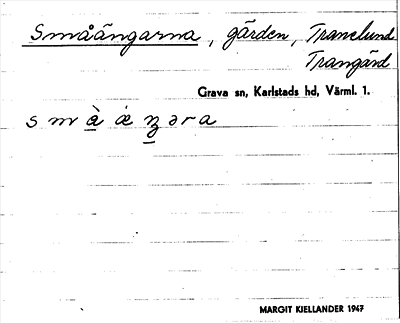 Småängarna, gården, Tranelund
Trangärd
Grava sn, Karlstads hd, Värml. 1.
MARGIT KIELLANDER 1947